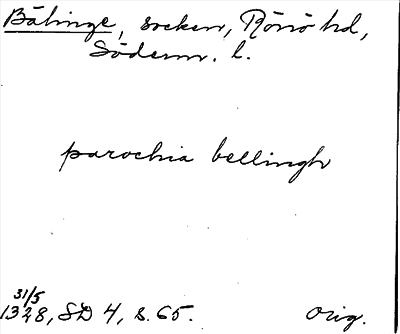 Bälinge, socken, Rönö hd,
Söderm. l.
parochia bellingh
31/5
1328, SD 4, s. 65. orig.